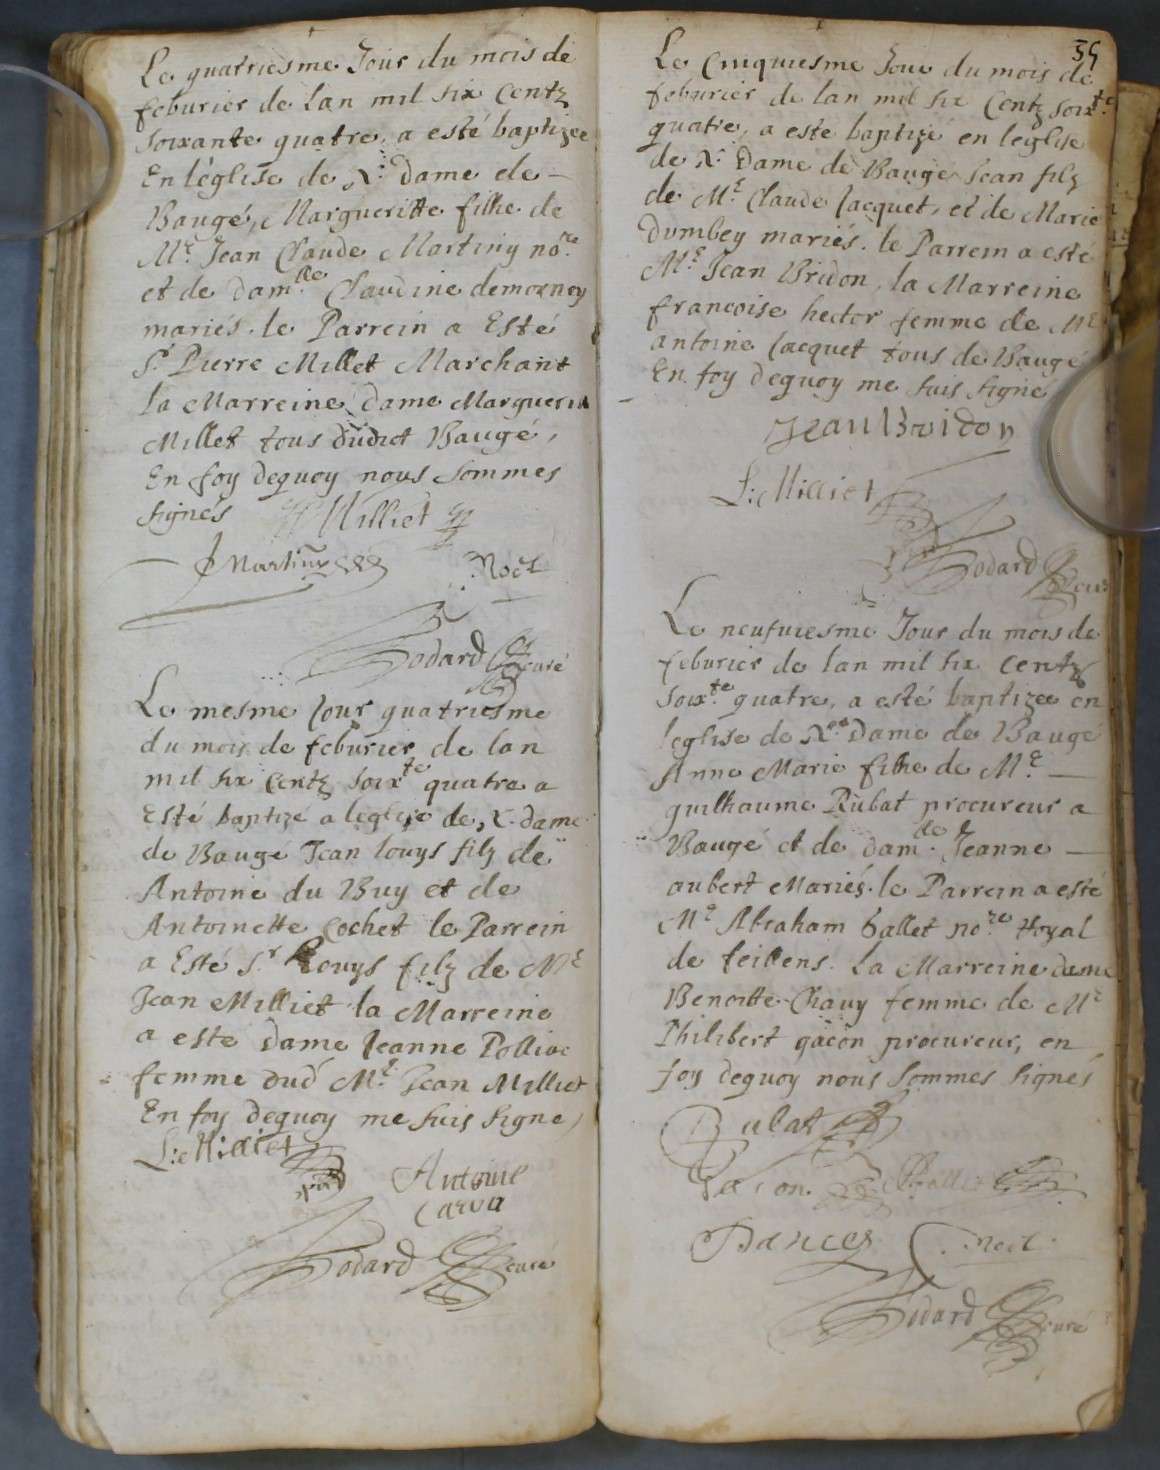 Le quatriesme Jour du mois de
feburier de lan mil six Centz
soixante quatre, a esté baptizee
En léglise de N: Dame de –
Baugé, Margueritte fille de
Mr. Jean Claude Martiny nore.
et de damlle. Claudine demornoy
mariés. le Parrein a Esté
Sr. Pierre Millet Marchant
la Marreine dame Marguerin
Millet tous dudict Baugé,
En foy dequoy nous sommes
signés Milliet
J Martiny
Noel
Godard curé
Le mesme Jour quatriesme
du mois de feburier de lan
mil six Centz soixte quatre a
Esté baptizé a leglise de N. dame
de Baugé Jean louys filz de
Antoine du Buy et de
Antoinette Cochet le Parrein
a Esté Sr. Louys filz de Mr
Jean Milliet la Marreine
a esté Dame Jeanne
femme dud Mr. Jean Milliet
En foy dequoy me suis signé
L: Milliet
Antoine
Carra
Godard curé
35
Le Cinquiesme Jour du mois de
feburier de lan mil six Centz soixte.
quatre, a esté baptizé en leglise
de N. Dame de Baugé Jean filz
de Mr. Claude Jacquet, et de Marie
Dumbey mariés. le Parrein a esté
Mr. Jean Bridon, la Marreine
francoise hector femme de Mr
antoine Jacquet tous de Baugé
En foy dequoy me suis signé
Jean Bridon
L: Milliet
Godard curé
Le neufuiesme Jour du mois de
feburier de lan mil six Centz
soixte. quatre, a esté baptizee en
leglise de Nre Dame de Baugé
Anne Marie fille de Mr. –
guilhaume Rubat procureur a
Baugé et de damle. Jeanne –
aubert Mariés. le Parrein a esté
Mr. Abraham Gallet nore. Royal
de feillens. La Marreine dame
Benoitte Chavy femme de Mr
Philibert gacon procureur, en
foy dequoy nous sommes signés
Rubat
Gacon Gallet
Dances Noel
Godard curé